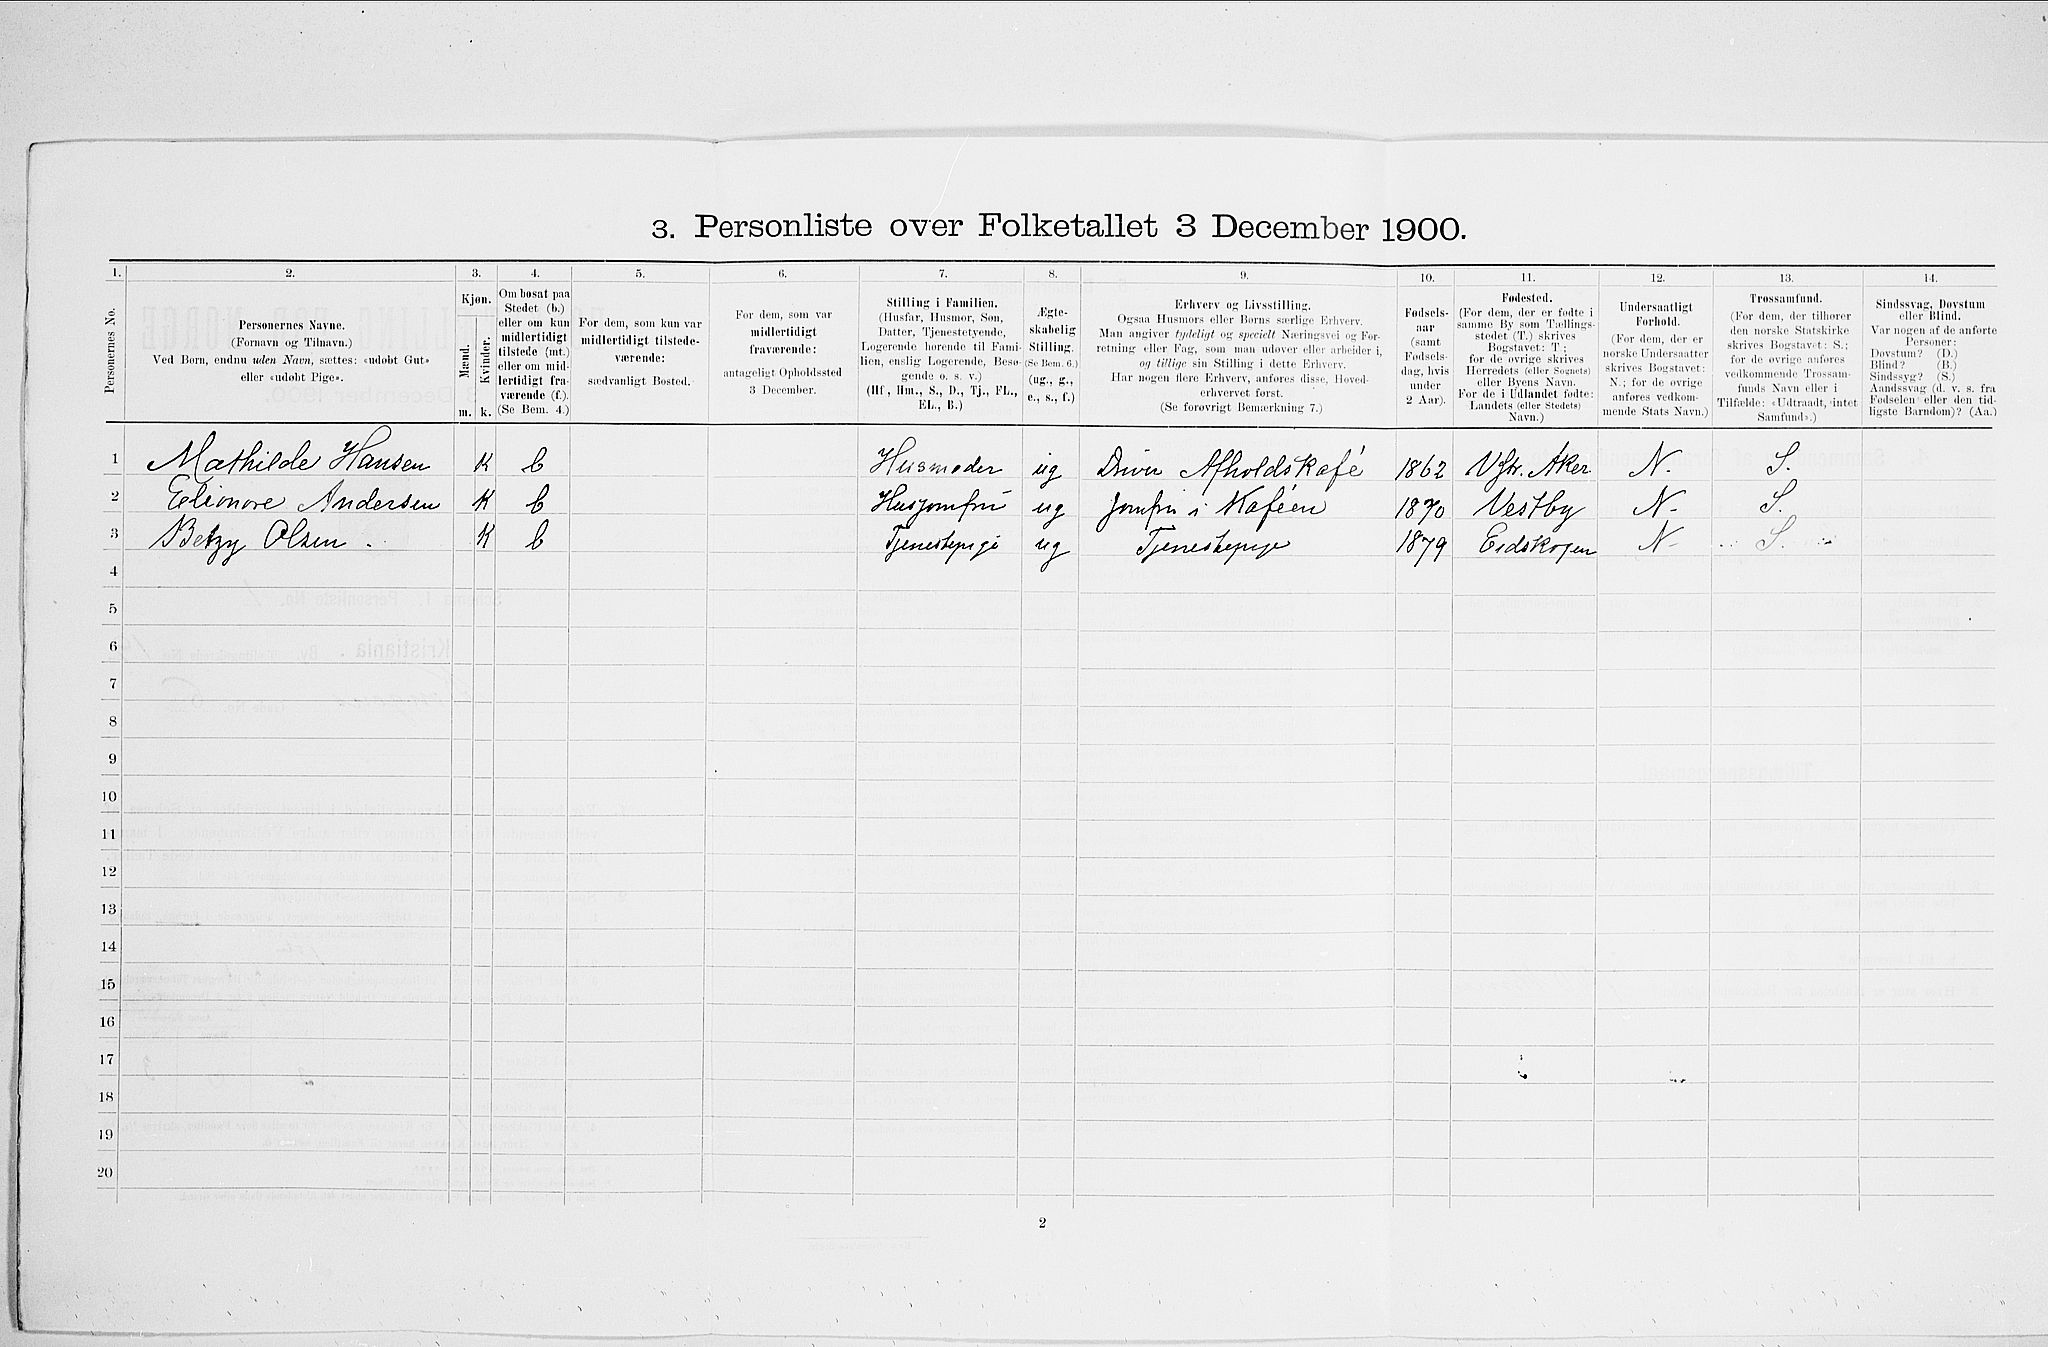 3. Personliste over Folketallet 3 December 1900.
1. 2. 3. 4. 5. 6. 7. 8. 9. 10. 11. 12. 13. 14.
Personernes No.
Personernes Navne.
(Fornavn og Tilnavn.)
Ved Børn, endnu uden Navn, sættes: «udøbt Gut»
eller «udøbt Pige».
Kjøn.
Mænd.
Kvinder.
m. k.
Om bosat paa
Stedet (b.)
eller om kun
midlertidigt
tilstede (mt.)
eller om mid-
lertidigt fra-
værende (f.).
(Se Bem. 4.)
For dem, som kun var
midlertidigt tilstede-
værende:
sædvanligt Bosted.
For dem, som var
midlertidigt
fraværende:
antageligt Opholdssted
3 December.
Stilling i Familien.
(Husfar, Husmor, Søn,
Datter, Tjenestetyende,
Logerende hørende til Fami-
lien, enslig Logerende, Besø-
gende o. s. v.)
(Hf, Hm., S., D., Tj., FL.,
EL., B.)
Ægte-
skabelig
Stilling.
(Se Bem. 6.)
(ug., g.,
e., s., f.)
Erhverv og Livsstilling.
Ogsaa Husmors eller Børns særlige Erhverv.
Man angiver tydeligt og specielt Næringsvei og For-
retning eller Fag, som man udøver eller arbeider i,
og tillige sin Stilling i dette Erhverv.
Har nogen flere Erhverv, anføres disse, Hoved-
erhvervet først.
(Se forøvrigt Bemærkning 7.)
Fødsels-
aar
(samt
Fødsels-
dag, hvis
under
2 Aar).
Fødested.
(For dem, der er fødte i
samme By som Tællings-
stedet (T.) skrives
Bogstavet: T;
for de øvrige skrives
Herredets (eller Sognets)
eller Byens Navn.
For de i Udlandet fødte:
Landets (eller Stedets)
Navn.)
Undersaatligt
Forhold.
(For dem, der er
norske Undersaatter
skrives Bogstavet:
N.; for de øvrige
anføres vedkom-
mende Stats Navn.)
Trossamfund.
(For dem, der tilhører
den norske Statskirke
skrives Bogstavet: S.;
for de øvrige anføres
vedkommende Trossam-
funds Navn eller i
Tilfælde: «Udtraadt, intet
Samfund».)
Sindssvag, Døvstum
eller Blind.
Var nogen af de anførte
Personer:
Døvstum? (D.)
Blind? (B.)
Sindssyg? (S.)
Aandssvag (d. v. s. fra
Fødselen eller den tid-
ligste Barndom)? (Aa.)
1 Mathilde Hansen K b Husmoder ug Driver Afholdskafé 1862 V. Aker N. S.
2 Elionore Andersen K b Husjomfru ug Jomfru i Kaféen 1870 Vestby N- S.
3 Betzy Olsen. K b Tjenestepige ug Tjenestepige 1879 Eidskogen N- S.
4
5
6
7
8
9
10
11
12
13
14
15
16
17
18
19
20
2